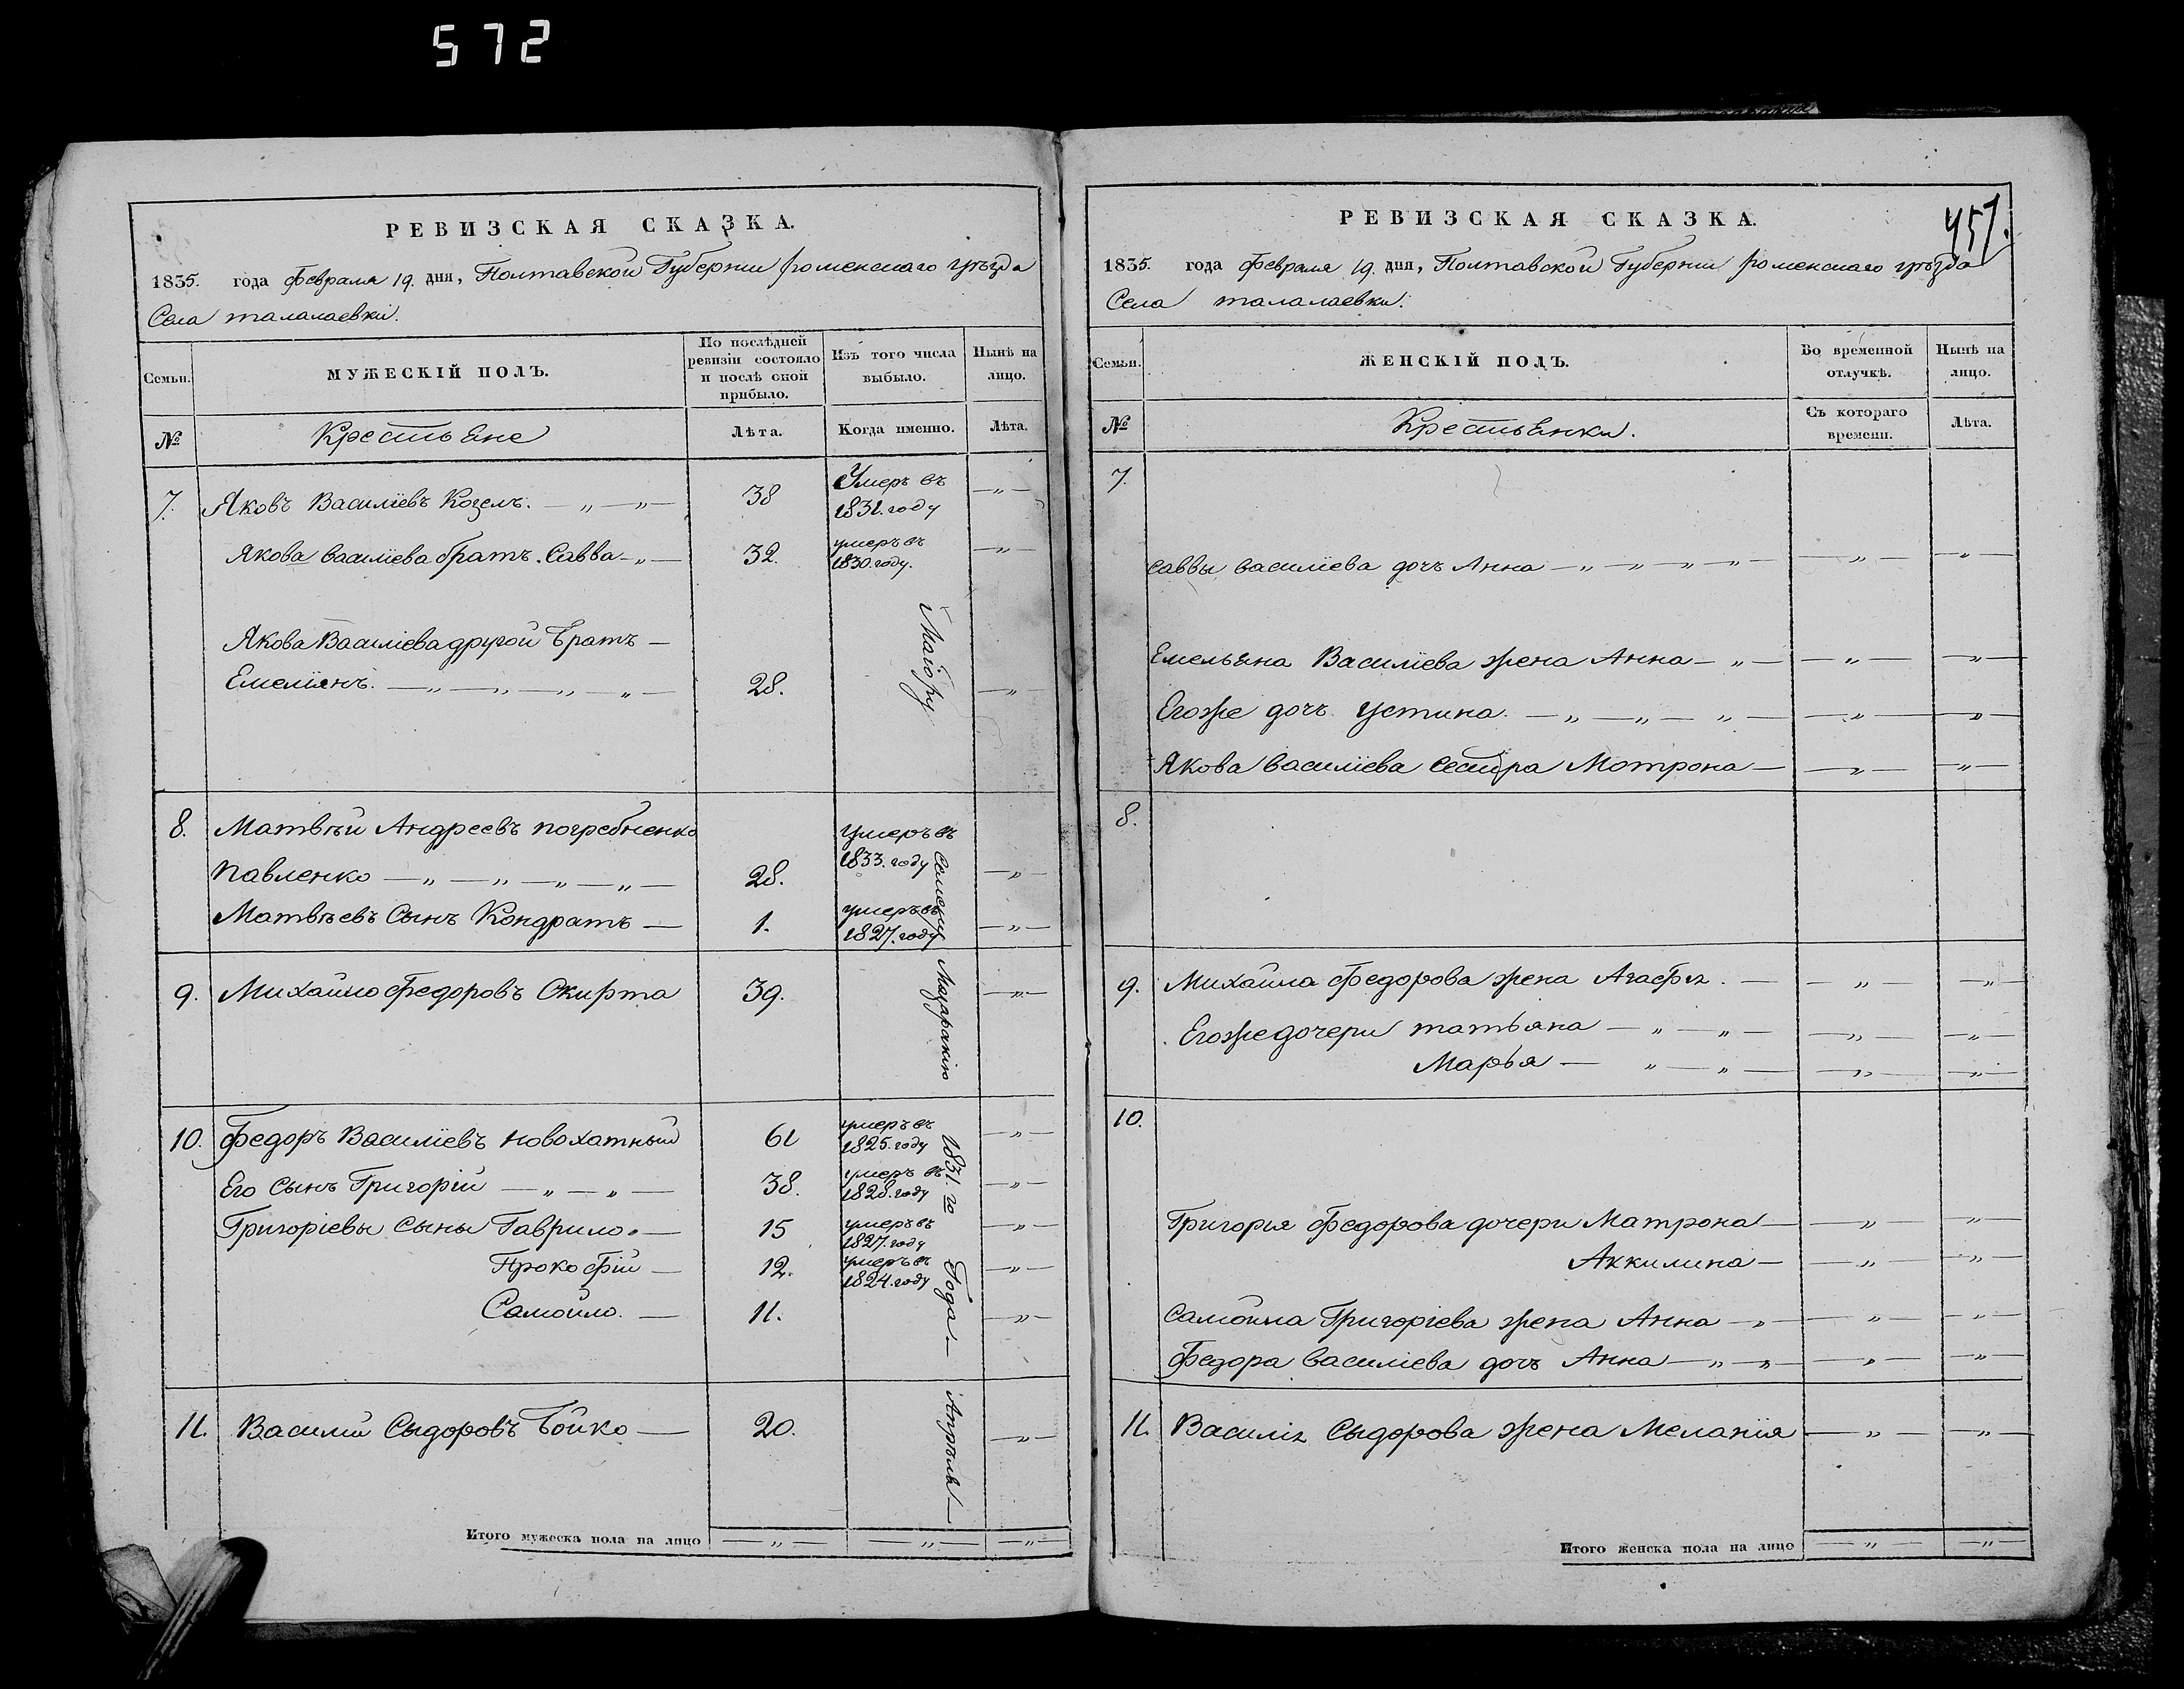 572
РЕВИЗСКАЯ СКАЗКА.
1835. года Февраля 19. дня, Полтавской Губернии роменскаго уѣзда
Села талалаевки.
Семьи. МУЖЕСКІЙ ПОЛЪ. По послѣдней ревизіи состояло и послѣ оной прибыло. Изъ того числа выбыло. Нынѣ на лицо.
№ Крестьяне Лѣта. Когда именно. Лѣта.
7. Яковъ Василіевъ Козелъ. — „ — „ — 38 Умеръ въ 1831. году — „ —
Якова василіева братъ. Савва — „ — 32. умеръ въ 1830. году. — „ —
Якова Василіева другой Братъ —
Емеліянъ. — „ — „ — „ — „ — 28. — „ —
Маіору
8. Матвѣй Андреевъ погребненко
павленко — „ — „ — „ — „ — 28. умеръ въ 1833. году — „ —
Матвѣевъ Сынъ Кондратъ — 1. умеръ въ 1827. году — „ —
Семену
9. Михайло Федоровъ Скирта 39. — „ —
10. Федоръ Василіевъ новохатный 61 умеръ въ 1825. году — „ —
Его Сынъ Григорій — „ — „ — 38. умеръ въ 1828. году — „ —
Григоріевы Сыны Гаврило. — 15 умеръ въ 1827. году — „ —
Прокофій — 12. умеръ въ 1824. году — „ —
Самойло. — 11. — „ —
1831. го Года —
11. Василий Сыдоровъ Бойко — 20. — „ —
Апрѣля —
Итого мужеска пола на лицо — „ — — „ — — „ —
457.
РЕВИЗСКАЯ СКАЗКА.
1835. года Февраля 19. дня, Полтавской Губернии роменскаго уѣзда
Села талалаевки.
Семьи. ЖЕНСКІЙ ПОЛЪ. Во временной отлучкѣ. Нынѣ на лицо.
№ Крестьянки. Съ котораго времени. Лѣта.
7.
саввы василіева дочь Анна — „ — „ — „ — „ — — „ — — „ —
Емельяна Василіева жена Анна — „ — — „ — — „ —
Егоже дочь Устина. — „ — „ — „ — — „ — — „ —
Якова василіева Сестра Мотрона — — „ — — „ —
8.
9. Михайла Федорова жена Агафья. — — „ — — „ —
Егоже дочери татьяна — „ — „ — — „ — — „ —
Марья — „ — „ — — „ — — „ —
10.
Григорія Федорова дочери Матрона — — „ — — „ —
Аккилина — — „ — — „ —
самойла Григоріева жена Анна — „ — — „ — — „ —
Федора василіева дочь Анна — „ — „ — — „ — — „ —
11. Василія Сыдорова жена Меланія — „ — — „ —
Итого женска пола на лицо — „ — — „ —